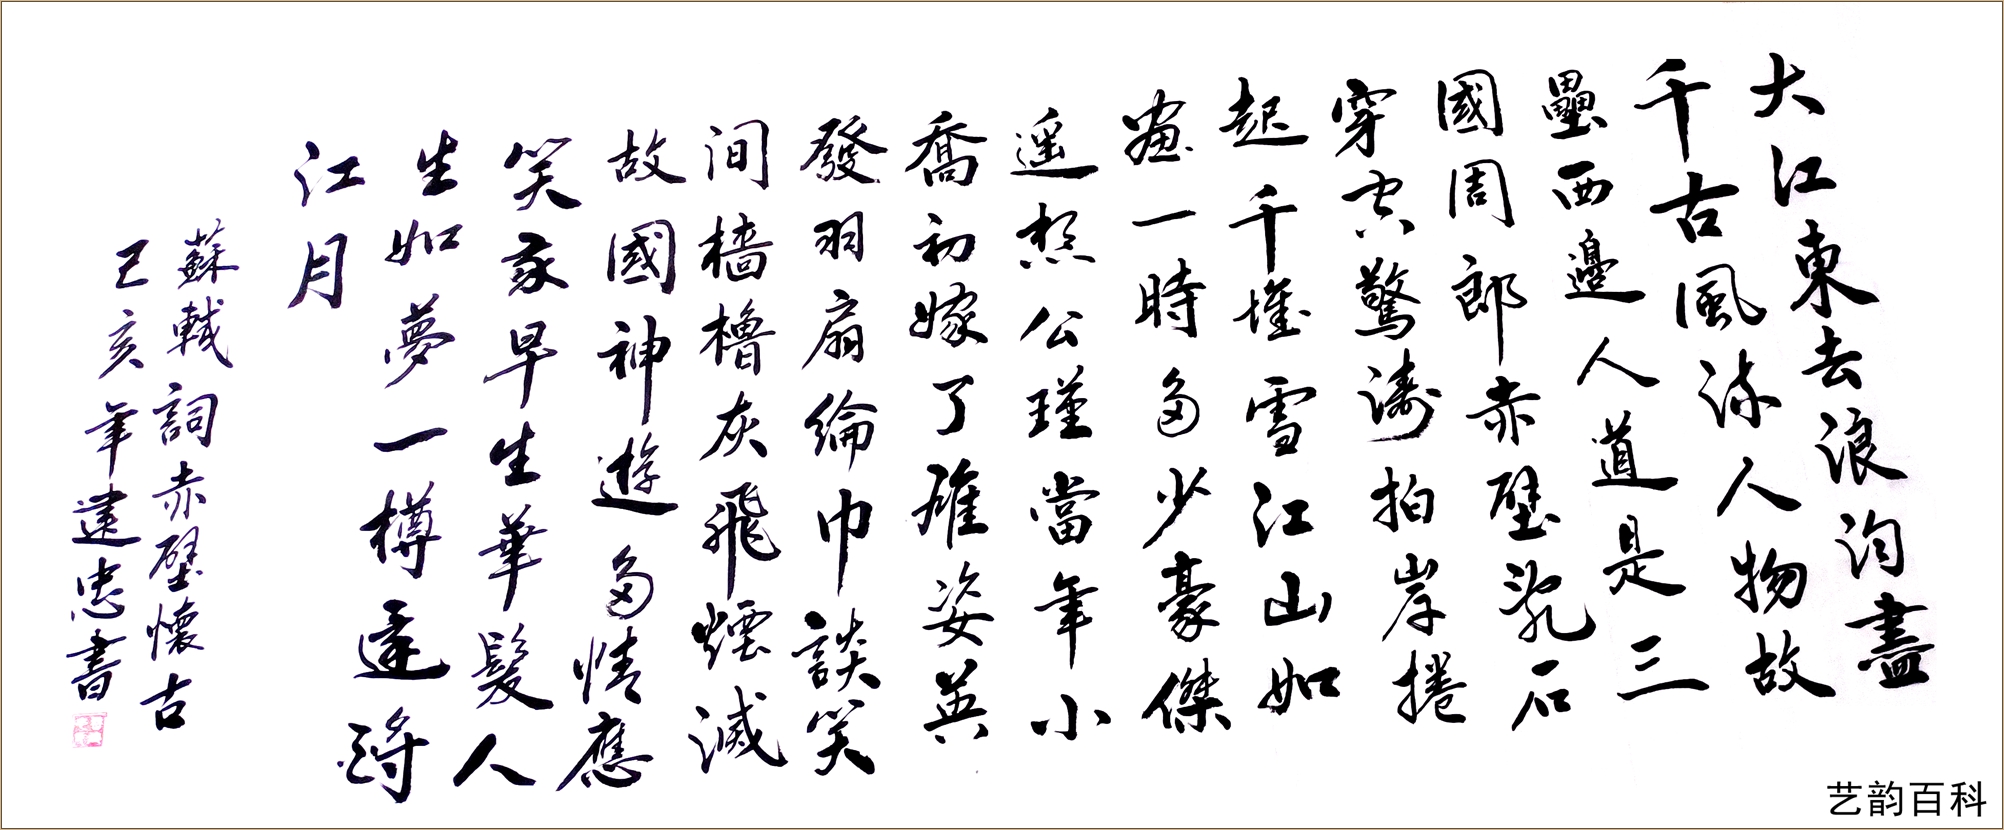 大江東去浪淘盡
千古風流人物故
壘西邊人道是三
國周郎赤壁亂石
穿空驚濤拍岸捲
起千堆雪江山如
畫一時多少豪傑
遥想公瑾當年小
喬初嫁了雄姿英
發羽扇綸巾談笑
间檣櫓灰飛煙滅
故國神遊多情應
笑我早生華髮人
生如夢一樽還酹
江月
蘇軾詞赤壁懷古
己亥年建忠書
艺韵百科